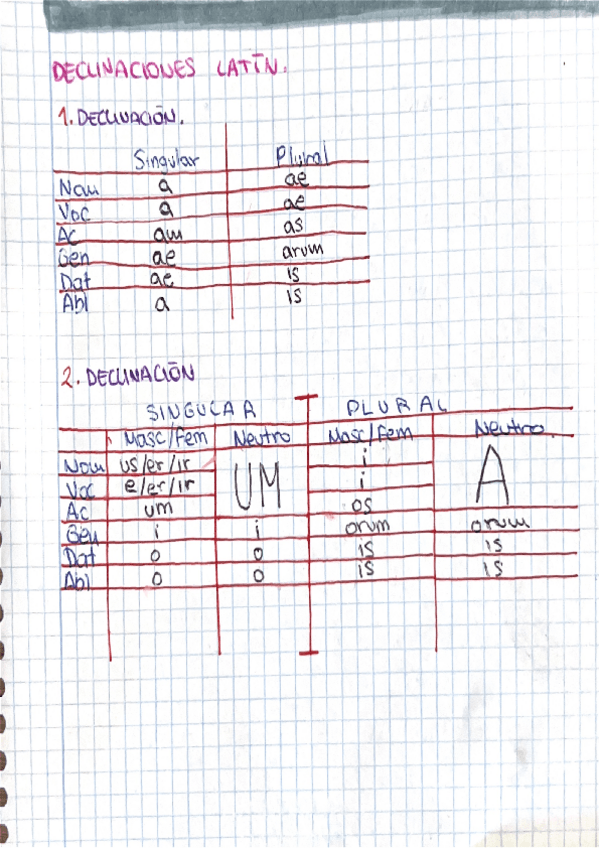 DECLINACIONES LATĪN.
1. DECLINACIŌN.
Singular Plural
Nom a ae
Voc a ae
Ac am as
Gen ae arum
Dat ae is
Abl a is
2. DECLINACIŌN
SINGULAR PLURAL
Masc/Fem Neutro Masc/Fem Neutro.
Nom us/er/ir UM i A
Voc e/er/ir i
Ac um os
Gen i i orum orum
Dat o o is is
Abl o o is is